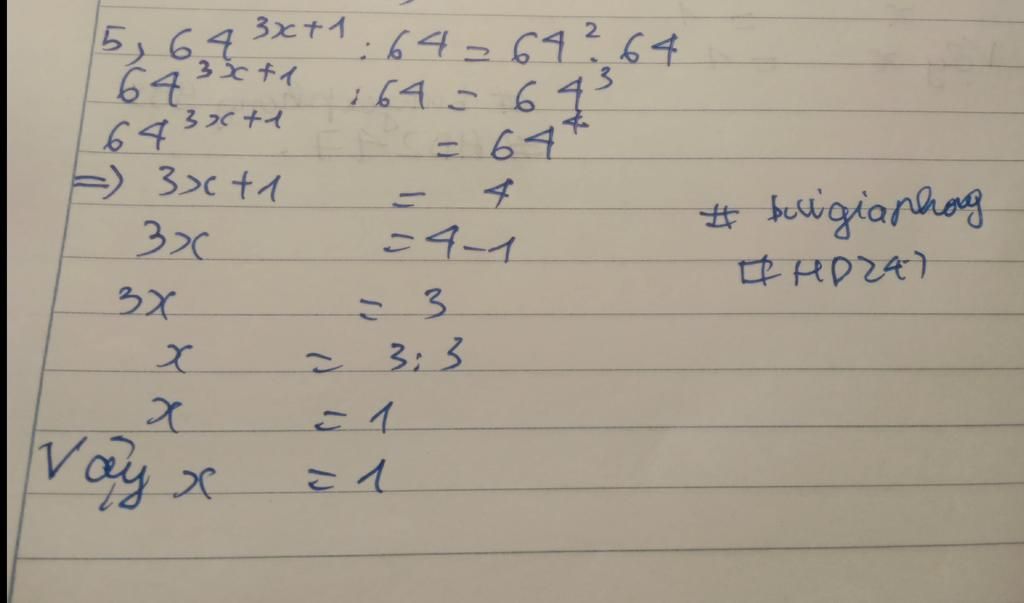 5, 64^{3x+1} : 64 = 64^2 . 64
64^{3x+1} : 64 = 64^3
64^{3x+1} = 64^4
=> 3x+1 = 4
3x = 4-1
3x = 3
x = 3:3
x = 1
Vậy x = 1
# buigiaphong
# HD247